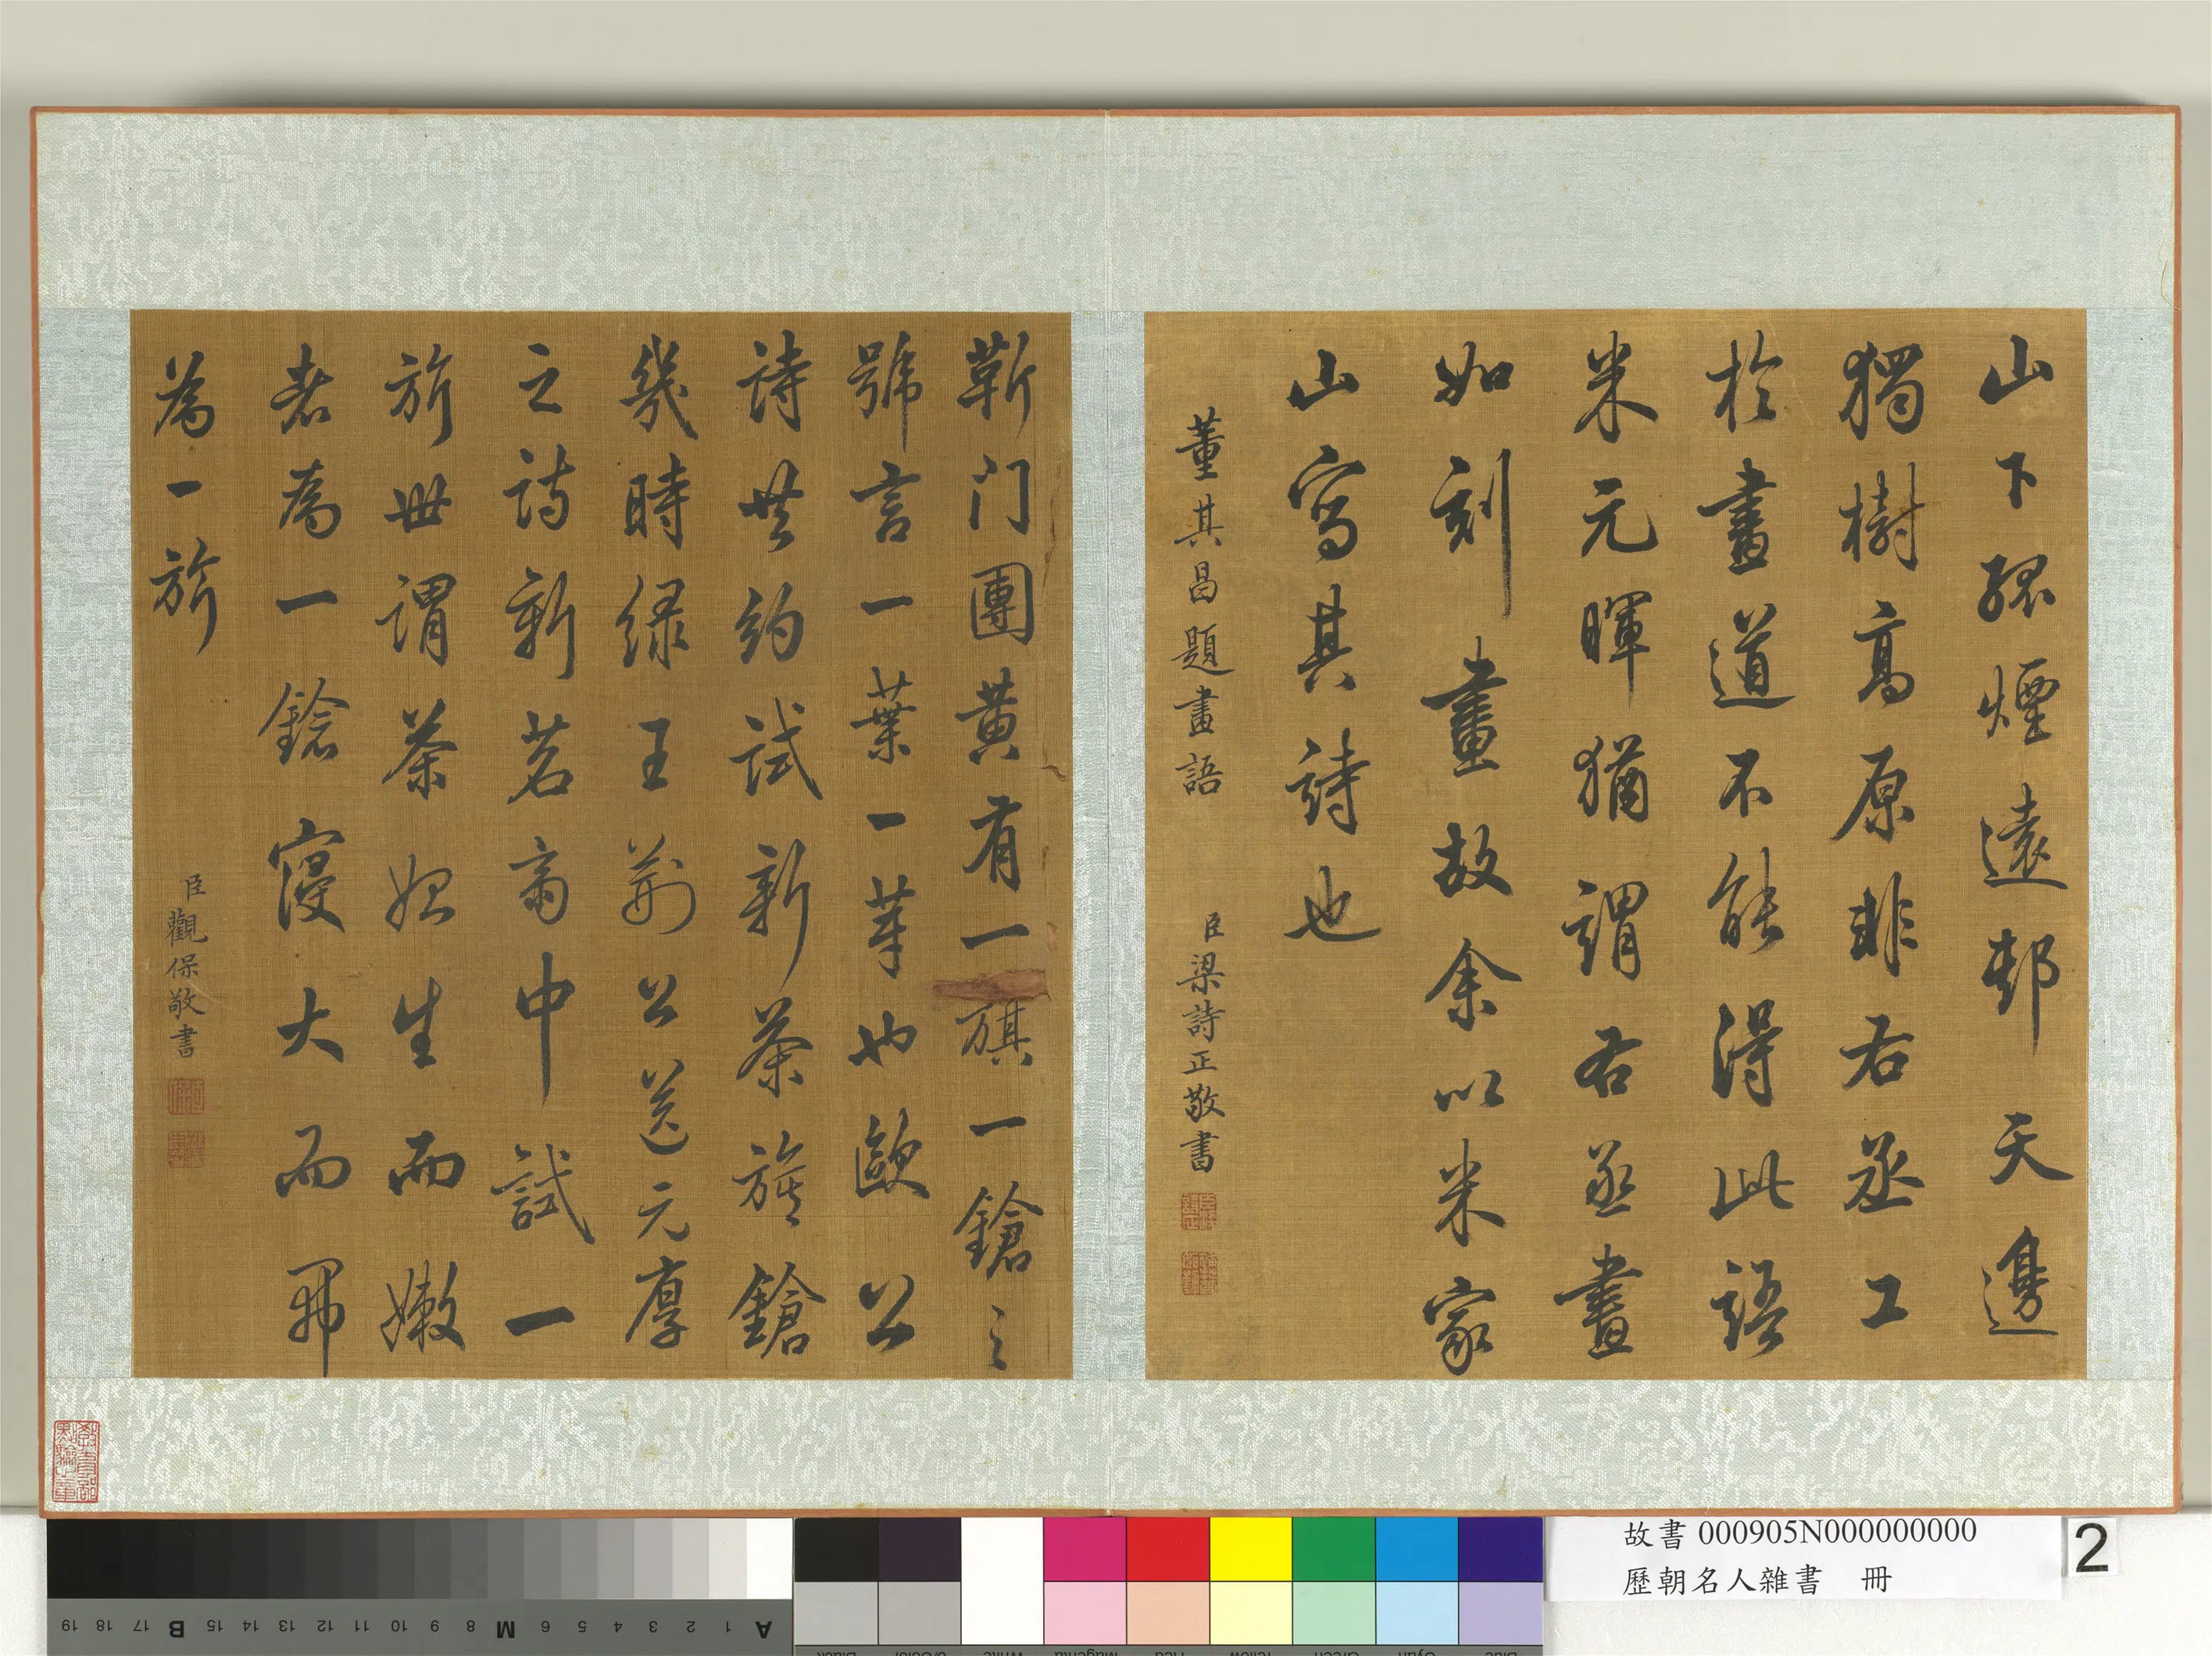 山下孤煙遠邨天邊
獨樹高原非右丞工
於畫道不能得此語
米元暉猶謂右丞畫
如刻畫故余以米家
山寫其詩也
董其昌題畫語
臣梁詩正敬書
蘄门團黄有一旗一鎗之
號言一葉一芽也歐公
詩共約試新茶旗鎗
幾時緑王荆公送元厚
之詩新茗齋中試一
旂世謂茶始生而嫩
者為一鎗寖大而開
為一旂
臣觀保敬書
故書 000905N000000000
歷朝名人雜書 冊
2
A 1 2 3 4 5 6 M 8 9 10 11 12 13 14 15 B 17 18 19